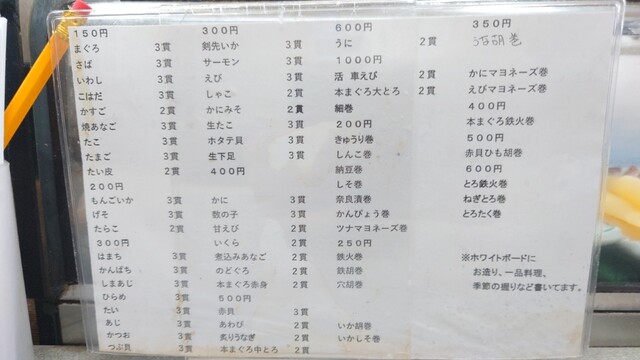 150円
まぐろ 3貫
さば 3貫
いわし 3貫
こはだ 3貫
かすご 2貫
焼あなご 3貫
たこ 3貫
たまご 3貫
たい皮 2貫
200円
もんごいか 3貫
げそ 3貫
たらこ 2貫
300円
はまち 3貫
かんぱち 3貫
しまあじ 3貫
ひらめ 3貫
たい 3貫
あじ 3貫
かつお 3貫
つぶ貝 3貫
300円
剣先いか 3貫
サーモン 3貫
えび 3貫
しゃこ 2貫
かにみそ 2貫
生たこ 3貫
ホタテ貝 3貫
生下足 3貫
400円
かに 3貫
数の子 3貫
甘えび 2貫
いくら 2貫
煮込みあなご 2貫
のどぐろ 2貫
本まぐろ赤身 2貫
500円
赤貝 3貫
あわび 2貫
炙りうなぎ 2貫
本まぐろ中とろ 2貫
600円
うに 2貫
1000円
活 車えび 2貫
本まぐろ大とろ 2貫
細巻
200円
きゅうり巻
しんこ巻
納豆巻
しそ巻
奈良漬巻
かんぴょう巻
ツナマヨネーズ巻
250円
鉄火巻
鉄胡巻
穴胡巻
いか胡巻
いかしそ巻
350円
うな胡巻
かにマヨネーズ巻
えびマヨネーズ巻
400円
本まぐろ鉄火巻
500円
赤貝ひも胡巻
600円
とろ鉄火巻
ねぎとろ巻
とろたく巻
※ホワイトボードに
お造り、一品料理、
季節の握りなど書いてます。